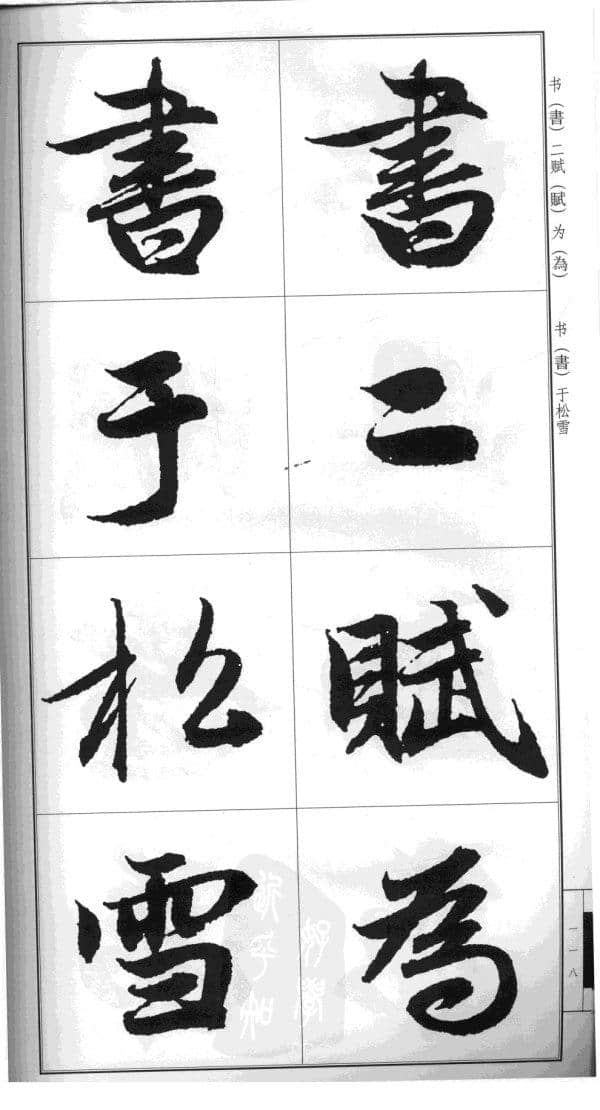 书（書）二赋（賦）为（為）　书（書）于松雪
書二賦為
書于松雪
一一八